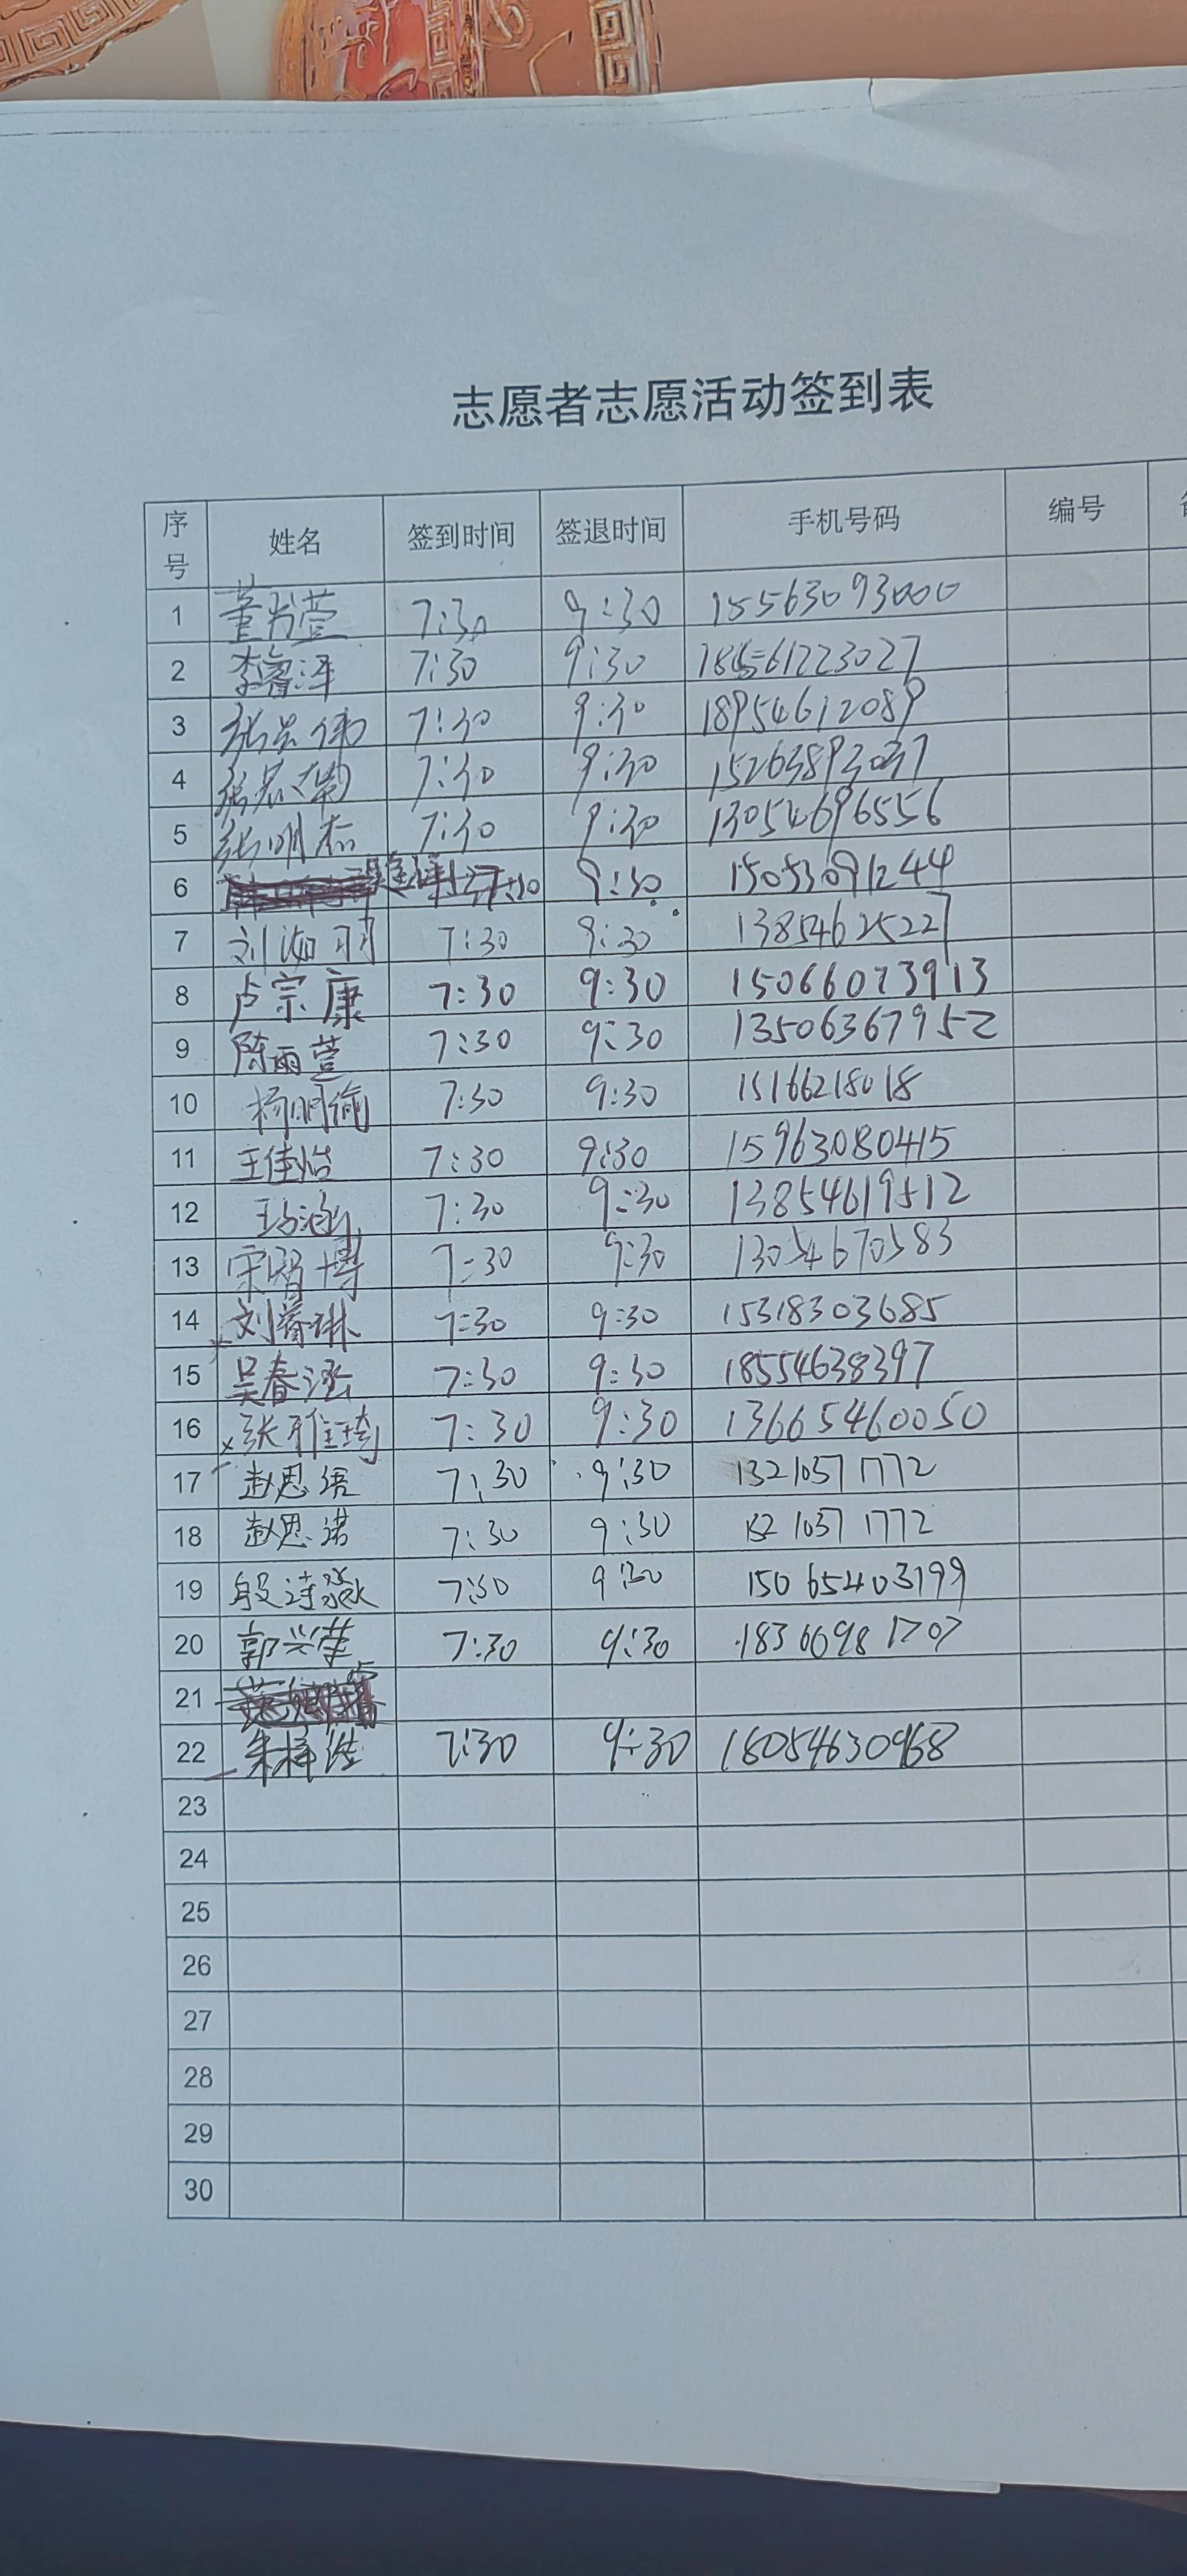 志愿者志愿活动签到表
序号 姓名 签到时间 签退时间 手机号码 编号
1 董书萱 7:30 9:30 15563093000
2 李睿泽 7:30 9:30 61223027
3 张昊伟 7:30 9:30 18954612089
4 7:30 9:30 15263893037
5 张明杰 7:30 9:30 13054696556
6 7:30 9:30 15053091244
7 刘海羽 7:30 9:30 13854625227
8 卢宗康 7:30 9:30 15066073913
9 陈雨萱 7:30 9:30 13506367952
10 杨明愉 7:30 9:30 15166218018
11 王佳怡 7:30 9:30 15963080415
12 7:30 9:30 13854619512
13 宋智博 7:30 9:30 13054670583
14 刘睿琳 7:30 9:30 15318303685
15 吴春泓 7:30 9:30 18554638397
16 张雅琦 7:30 9:30 13665460050
17 赵思语 7:30 9:30 13210371772
18 赵思诺 7:30 9:30 13210371772
19 殷诗淼 7:30 9:30 15065403199
20 郭兴华 7:30 9:30 18366981707
21
22 朱梓浩 7:30 9:30 18054630968
23
24
25
26
27
28
29
30